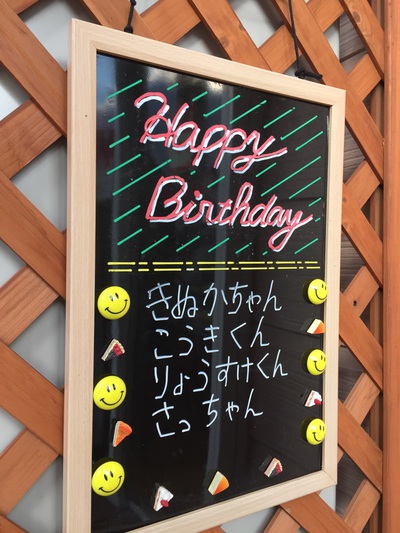 Happy
Birthday
きぬかちゃん
こうきくん
りょうすけくん
さっちゃん